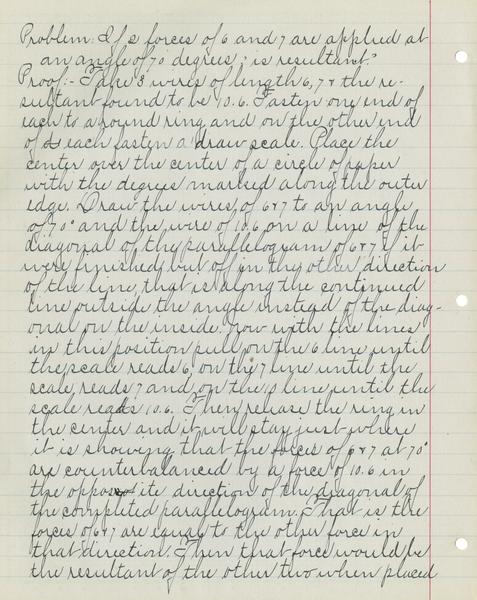 Problem: If 2 forces of 6 and 7 are applied at
an angle of 70 degrees, ? is resultant?
Proof:- Take 3 wires of length 6, 7 & the re-
sultant found to be 10.6. Fasten one end of
each to a round ring and on the other end
of each fasten a draw scale. Place the
center over the center of a circle of paper
with the degrees marked along the outer
edge. Draw the wires of 6&7 to an angle
of 70° and the wire of 10.6 on a line of the
diagonal of the parallelogram of 6&7 if it
were finished but off in the other direction
of the line, that is along the continued
line outside the angle instead of the diag-
onal on the inside. Now with the lines
in this position pull on the 6 line until
the scale reads 6, on the 7 line until the
scale reads 7 and on the 10 line until the
scale reads 10.6. Then release the ring in
the center and it will stay just where
it is showing that the forces of 6&7 at 70°
are counterbalanced by a force of 10.6 in
the opposite direction of the diagonal of
the completed parallelogram. That is the
forces of 6&7 are equal to the other force in
that direction. Then that force would be
the resultant of the other two when placed